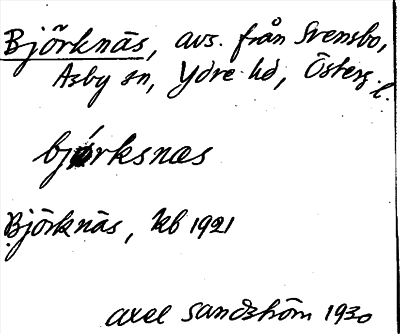 Björknäs, avs. från Svensbo,
Asby sn, Ydre hd, Österg. l.
björksnas
Björknäs, kb 1921
Axel Sandström 1930